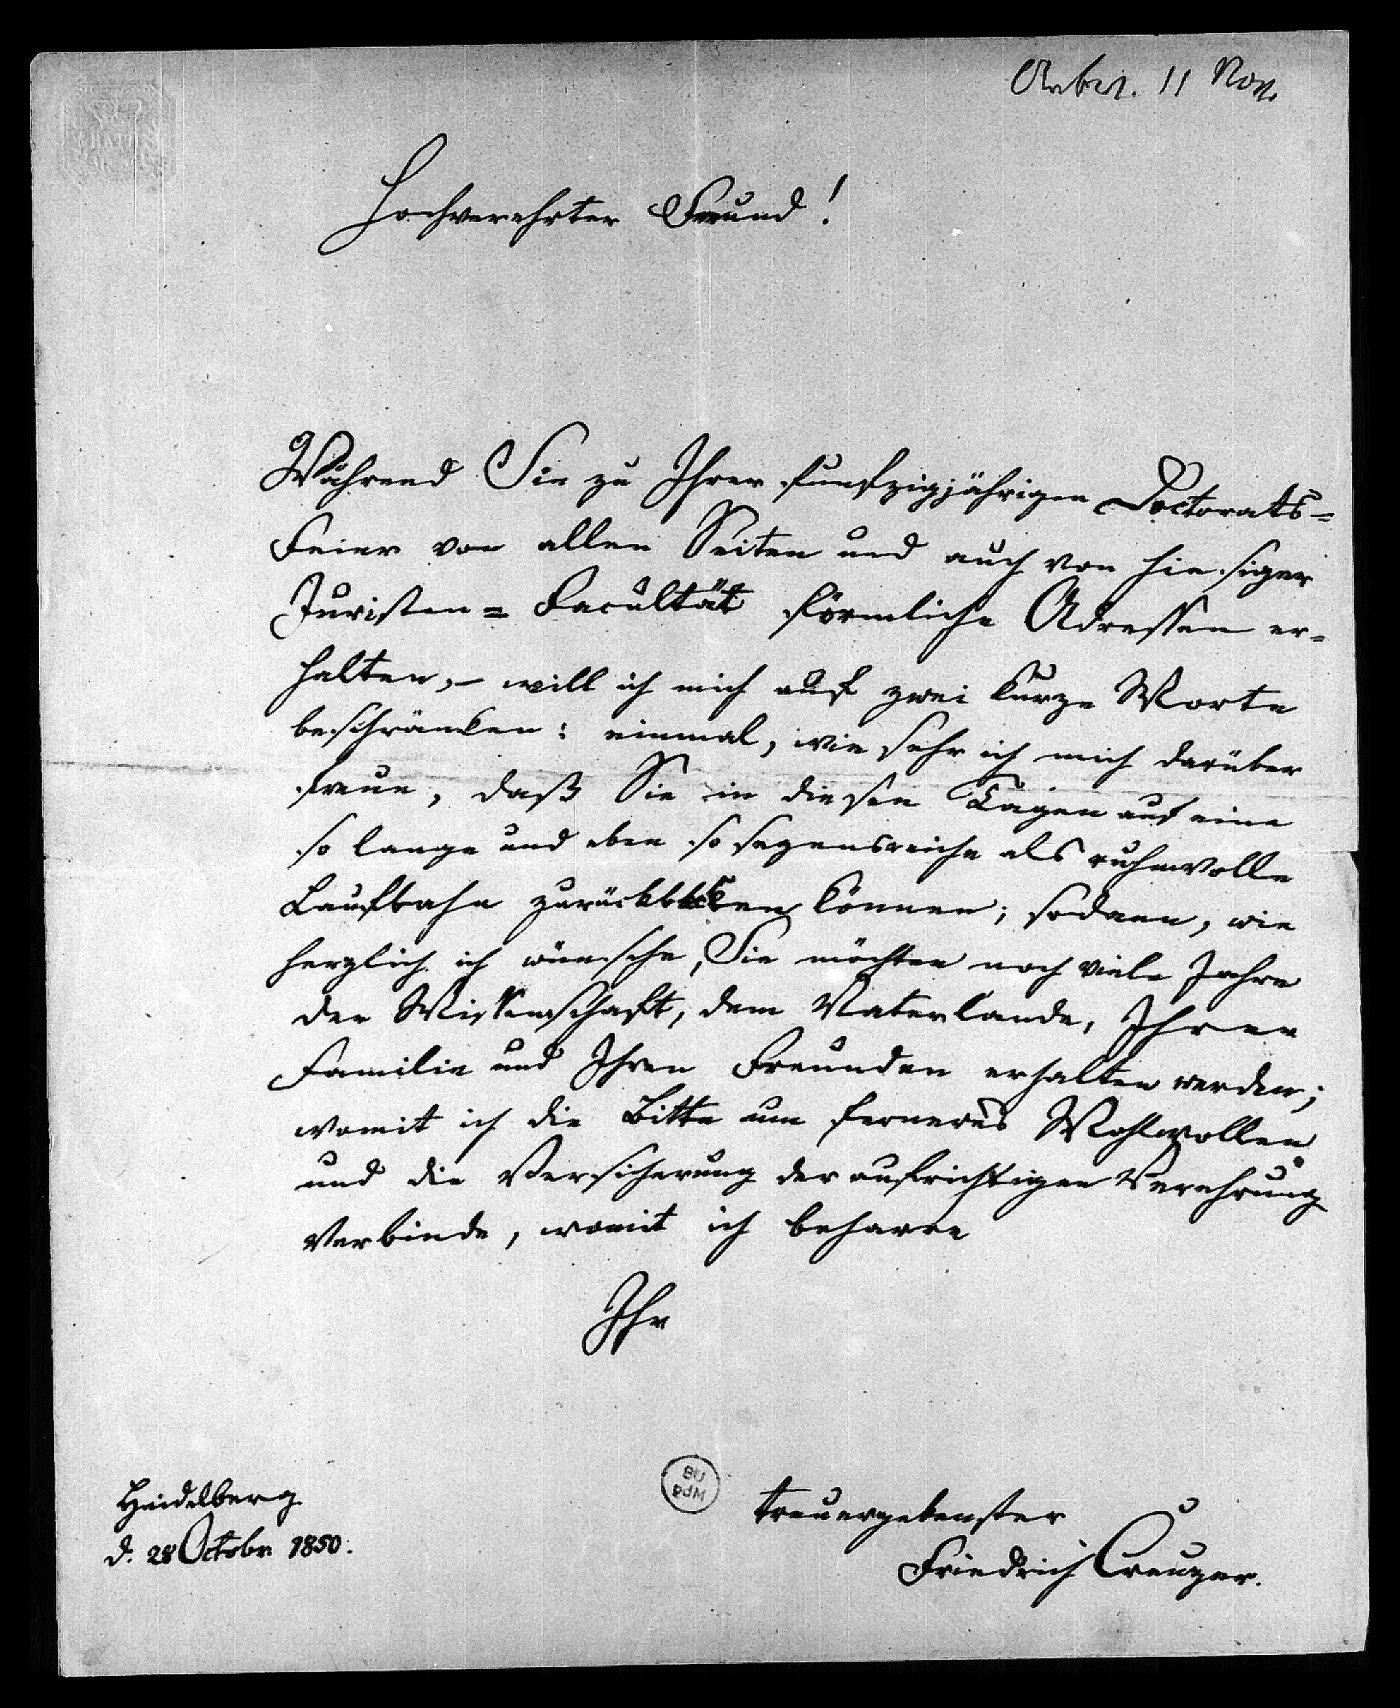 11 Nov.
Hochverehrter Freund!
Während Sie zu Ihrer funfzigjährigen Doctorats=
Feier von allen Seiten und auch von hiesiger
Juristen=Facultät förmliche Adressen er=
halten, – will ich mich auf zwei kurze Worte
beschränken: einmal, wie sehr ich mich darüber
freue, daß Sie in diesen Tagen auf eine
so lange und eben so segensreiche als ruhmvolle
Laufbahn zurückblicken können; sodann, wie
herzlich ich wünsche, Sie möchten noch viele Jahre
der Wissenschaft, dem Vaterlande, Ihrer
Familie und Ihren Freunden erhalten werden;
womit ich die Bitte um ferneres Wohlwollen
und die Versicherung der aufrichtigen Verehrung
verbinde, womit ich beharre
Ihr
treuergebenster
Friedrich Creuzer.
Heidelberg
d. 28 Octobr 1850.
BU